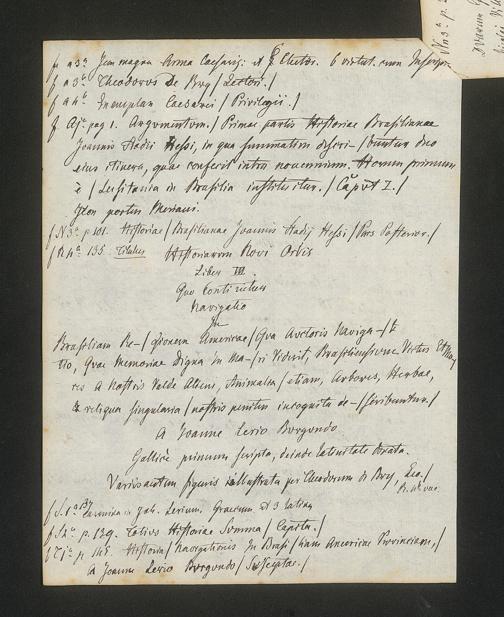 f a 3ª Jcon magna Arma Caesaris: et 6 Elector. 6 virtut. cum Inscript
f a 3ᵇ Theodorus De Bry / Lectori. /
f a 4ᵇ Exemplar Caesarei / Privilegii. /
f Ajª pag 1. Argumentum. / Primae partis Historiae Brasilianae
Joannis Stadii Hessi, in qua summatim descri- / buntur duo
eius itinera, quae confecit intra novennium. Horum primum
è / Lusitania in Brasilia instituitur. / Capvt I. /
Jcon portus
f N 3ª p 101. Historiae / Brasilianae Joannis Stadij Hessi / Pars Posterior. /
f R 4ª 135 Titulus Historiarum Novi Orbis
Liber III.
Quo Continetur
Navigatio
In
Brasiliam Re- / gionem Americae / Qua Auctoris Naviga- /
tio, Quae Memoriae Digna in Ma- / ri Viderit, Brasiliensium Victus Et Mo-
res A Nostris Valde Alieni, Animalia / etiam, Arbores, Herbae,
& reliqua singularia / nostris penitus incognita de- / scribuntur. /
A Joanne Lerio Burgundo
Gallicè primum scripta, deinde latinitate donata.
Variis autem figuris illustrata per Theodorum de Bry, Leo. /
f S. 1ª 137 Carmina in Joh. Lerium. Graecum et 3 latina
f S 2ª p. 139. Totius Historiae Summa / Capita. /
f T 1ª p 145. Historia / Navigationis In Brasi / liam Americae Provinciam, /
A Joanne Lerio Burgundo / Susceptae. /